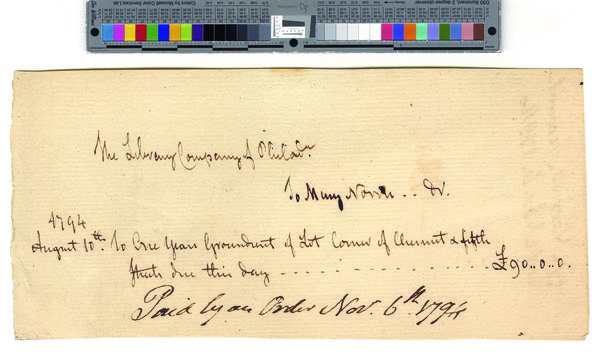 The Library Company of Philada.
To Mary Norris .. Dr.
1794
August 10th. To One Years Groundrent of Lot Corner of Chesnut & fifth
Streets due this day - - - - - - - - - - - - £90..0..0.
Paid by an Order Nov. 6th. 1794